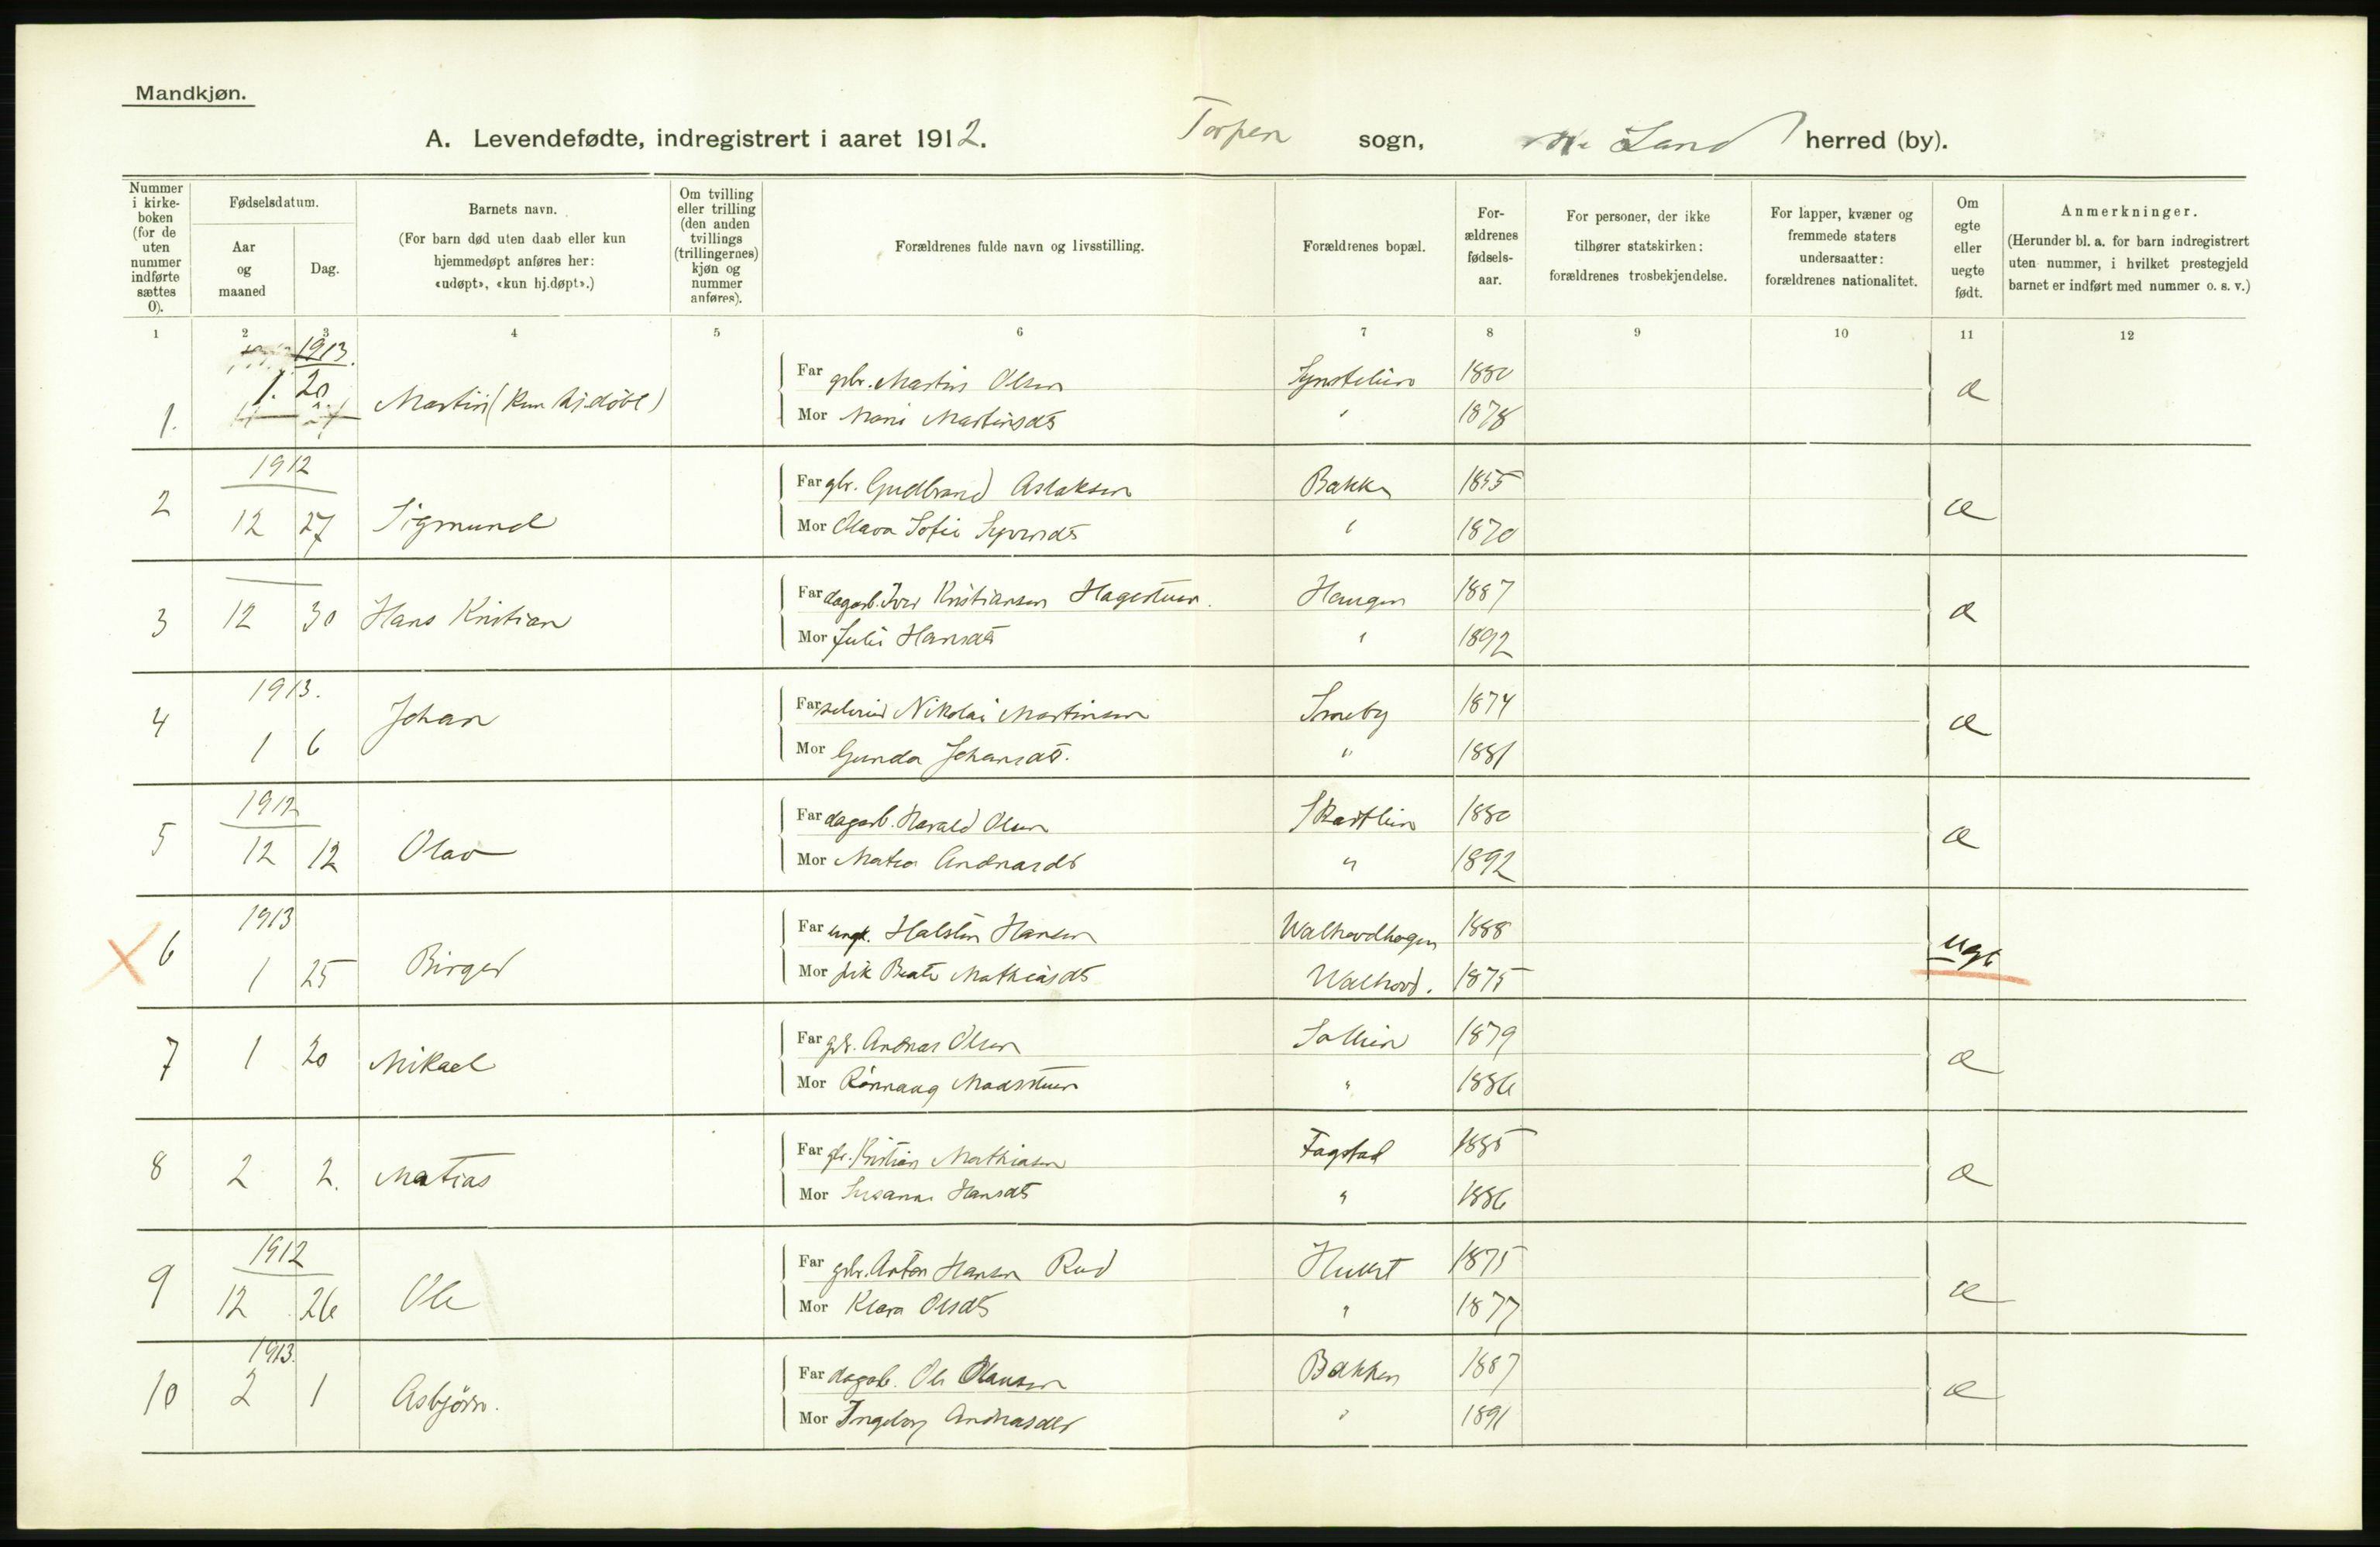 Mandkjøn.
A. Levendefødte, indregistrert i aaret 1912. Torpen sogn, Land herred (by).
Nummer i kirke-boken (for de uten nummer indførte sættes 0).
Fødselsdatum.
Aar og maaned
Dag.
Barnets navn.
(For barn død uten daab eller kun hjemmedøpt anføres her: «udøpt», «kun hj.døpt».)
Om tvilling eller trilling (den anden tvillings (trillingernes) kjøn og nummer anføres).
Forældrenes fulde navn og livsstilling.
Forældrenes bopæl.
For-ældrenes fødsels-aar.
For personer, der ikke tilhører statskirken: forældrenes trosbekjendelse.
For lapper, kvæner og fremmede staters undersaatter: forældrenes nationalitet.
Om egte eller uegte født.
Anmerkninger.
(Herunder bl. a. for barn indregistrert uten nummer, i hvilket prestegjeld barnet er indført med nummer o. s. v.)
1 2 3 4 5 6 7 8 9 10 11 12
1913.
1. 1. 20 Martin (kun hj.døbt)
Far gbr. Martin Olsen 1880
Mor Mari Martinsdt " 1878
1912
2 12 27 Sigmund
Far gbr. Gudbrand Aslaksen Bakke 1855
Mor Olava Sofie Syversdt " 1870
3 12 30 Hans Kristian
Far dagarb. Iver Kristiansen Hagestuen. Haugen 1887
Mor Julie Hansdt " 1892
1913.
4 1 6 Johan
Far Nikolai Martinsen Smeby 1874
Mor Gunda Johansdt. " 1881
1912
5 12 12 Olav
Far dagarb. Harald Olsen 1880
Mor Matea Andreasdt " 1892
1913
6 1 25 Birger
Far ungk. Halsten Hansen Walhovdhagen 1888 ugt
Mor pik Beate Mathiasdt Walhovd. 1875
7 1 20 Mikael
Far gbr. Andreas Olsen Sollien 1879
Mor Rønnaug Madsstuen " 1886
8 2 2. Matias
Far gbr. Kristian Mathiasen Fagstad 1885
Mor Susanne Hansdt " 1886
1912
9 12 26 Ole
Far gbr. Anton Hansen Rud 1875
Mor Klara Olsdt " 1877
1913.
10 2 1 Asbjörn.
Far dagarb. Ole Olausen Bakken 1887
Mor Ingeborg Andreasdt " 1891